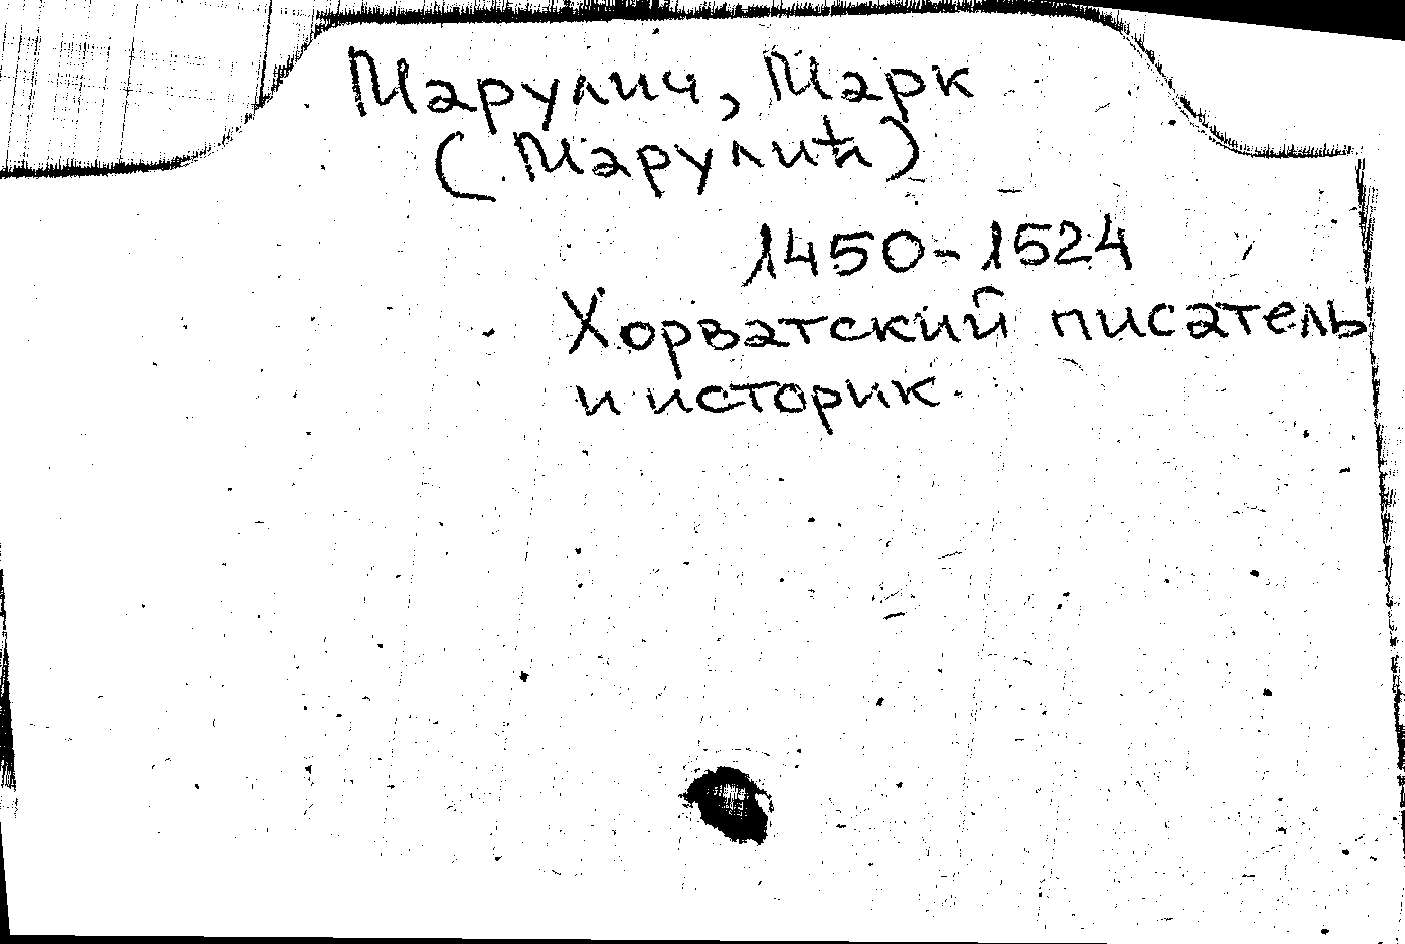 Марулич, Марк
(Марулић)
1450-1524
Хорватский писатель
и историк.